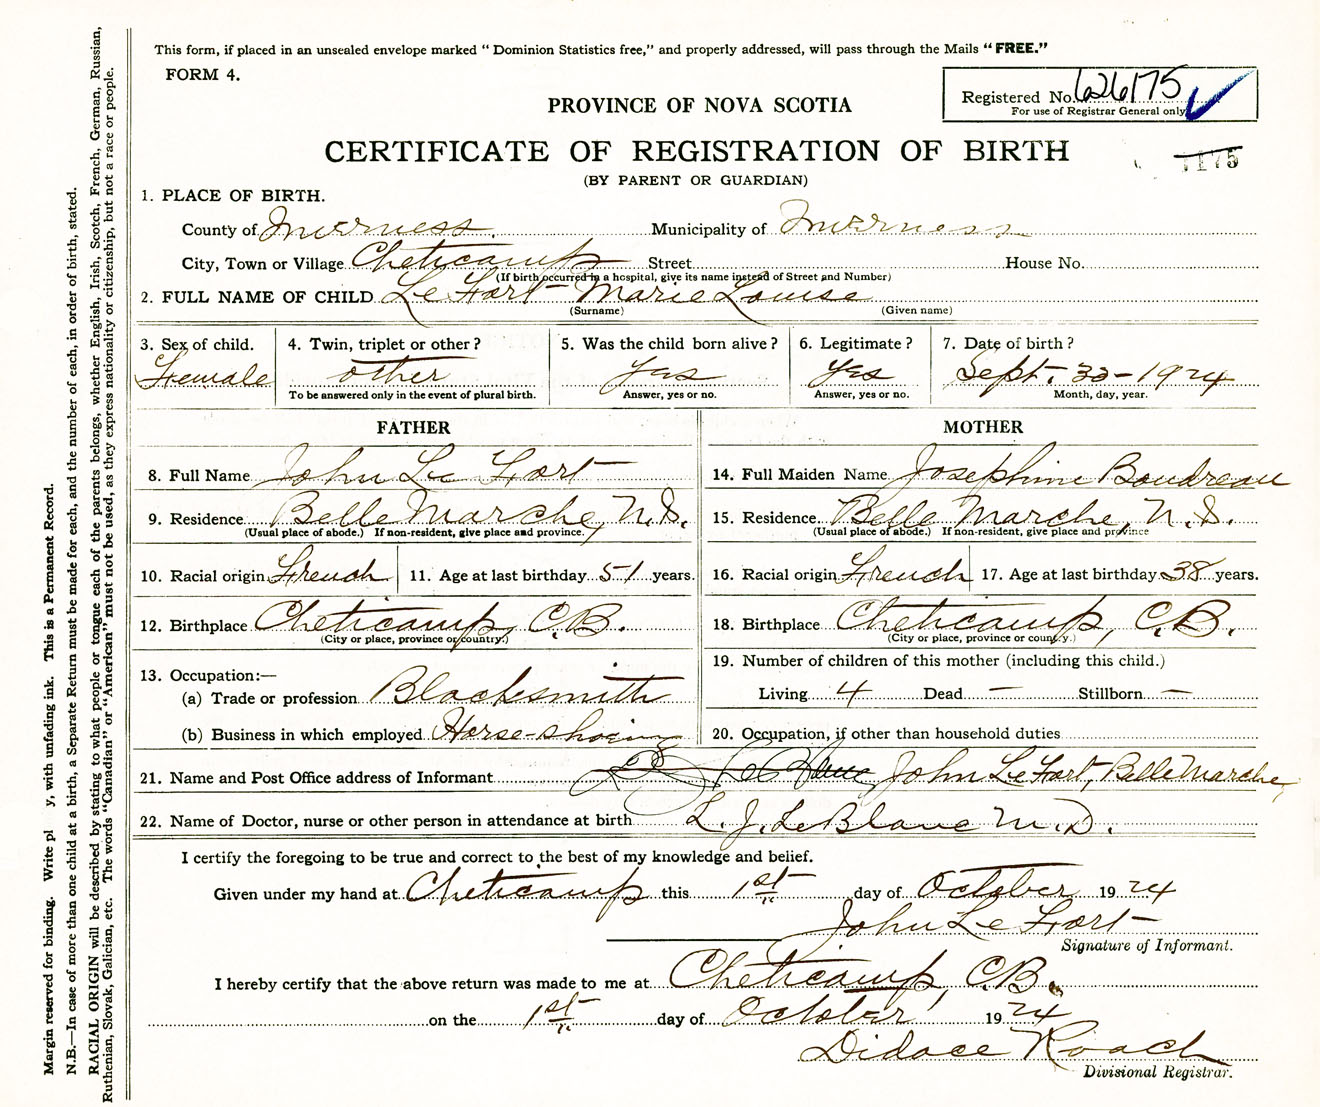 This form, if placed in an unsealed envelope marked “ Dominion Statistics free,” and properly addressed, will pass through the Mails “FREE.”
FORM 4.
Registered No. 626175
For use of Registrar General only
PROVINCE OF NOVA SCOTIA
CERTIFICATE OF REGISTRATION OF BIRTH
(BY PARENT OR GUARDIAN)
1. PLACE OF BIRTH.
County of Inverness. Municipality of Inverness
City, Town or Village Cheticamp Street House No.
(If birth occurred in a hospital, give its name instead of Street and Number)
2. FULL NAME OF CHILD Le Fort Marie Louise
(Surname) (Given name)
3. Sex of child. 4. Twin, triplet or other? 5. Was the child born alive? 6. Legitimate? 7. Date of birth?
Female other yes yes Sept. 1924
To be answered only in the event of plural birth. Answer, yes or no. Answer, yes or no. Month, day, year.
FATHER MOTHER
8. Full Name John Le Fort 14. Full Maiden Name Josephine Boudreau
9. Residence Belle Marche, N.S. 15. Residence Belle Marche, N.S.
(Usual place of abode.) If non-resident, give place and province. (Usual place of abode.) If non-resident, give place and province
10. Racial origin French 11. Age at last birthday 51 years. 16. Racial origin French 17. Age at last birthday 38 years.
12. Birthplace Cheticamp, C.B. 18. Birthplace Cheticamp, C.B.
(City or place, province or country.) (City or place, province or country.)
19. Number of children of this mother (including this child.)
13. Occupation:—
(a) Trade or profession Blacksmith Living 4 Dead — Stillborn —
(b) Business in which employed Horse-shoeing 20. Occupation, if other than household duties
21. Name and Post Office address of Informant John Le Fort, Belle Marche,
22. Name of Doctor, nurse or other person in attendance at birth L. J. LeBlanc M.D.
I certify the foregoing to be true and correct to the best of my knowledge and belief.
Given under my hand at Cheticamp this 1st day of October 1924
John Le Fort
Signature of Informant.
I hereby certify that the above return was made to me at Cheticamp C.B.
on the 1st day of October 1924
Didace Roach
Divisional Registrar.
Margin reserved for binding. Write pl y, with unfading ink. This is a Permanent Record.
N.B.—In case of more than one child at a birth, a Separate Return must be made for each, and the number of each, in order of birth, stated.
RACIAL ORIGIN will be described by stating to what people or tongue each of the parents belongs, whether English, Irish, Scotch, French, German, Russian,
Ruthenian, Slovak, Galician, etc. The words “Canadian” or “American” must not be used, as they express nationality or citizenship, but not a race or people.